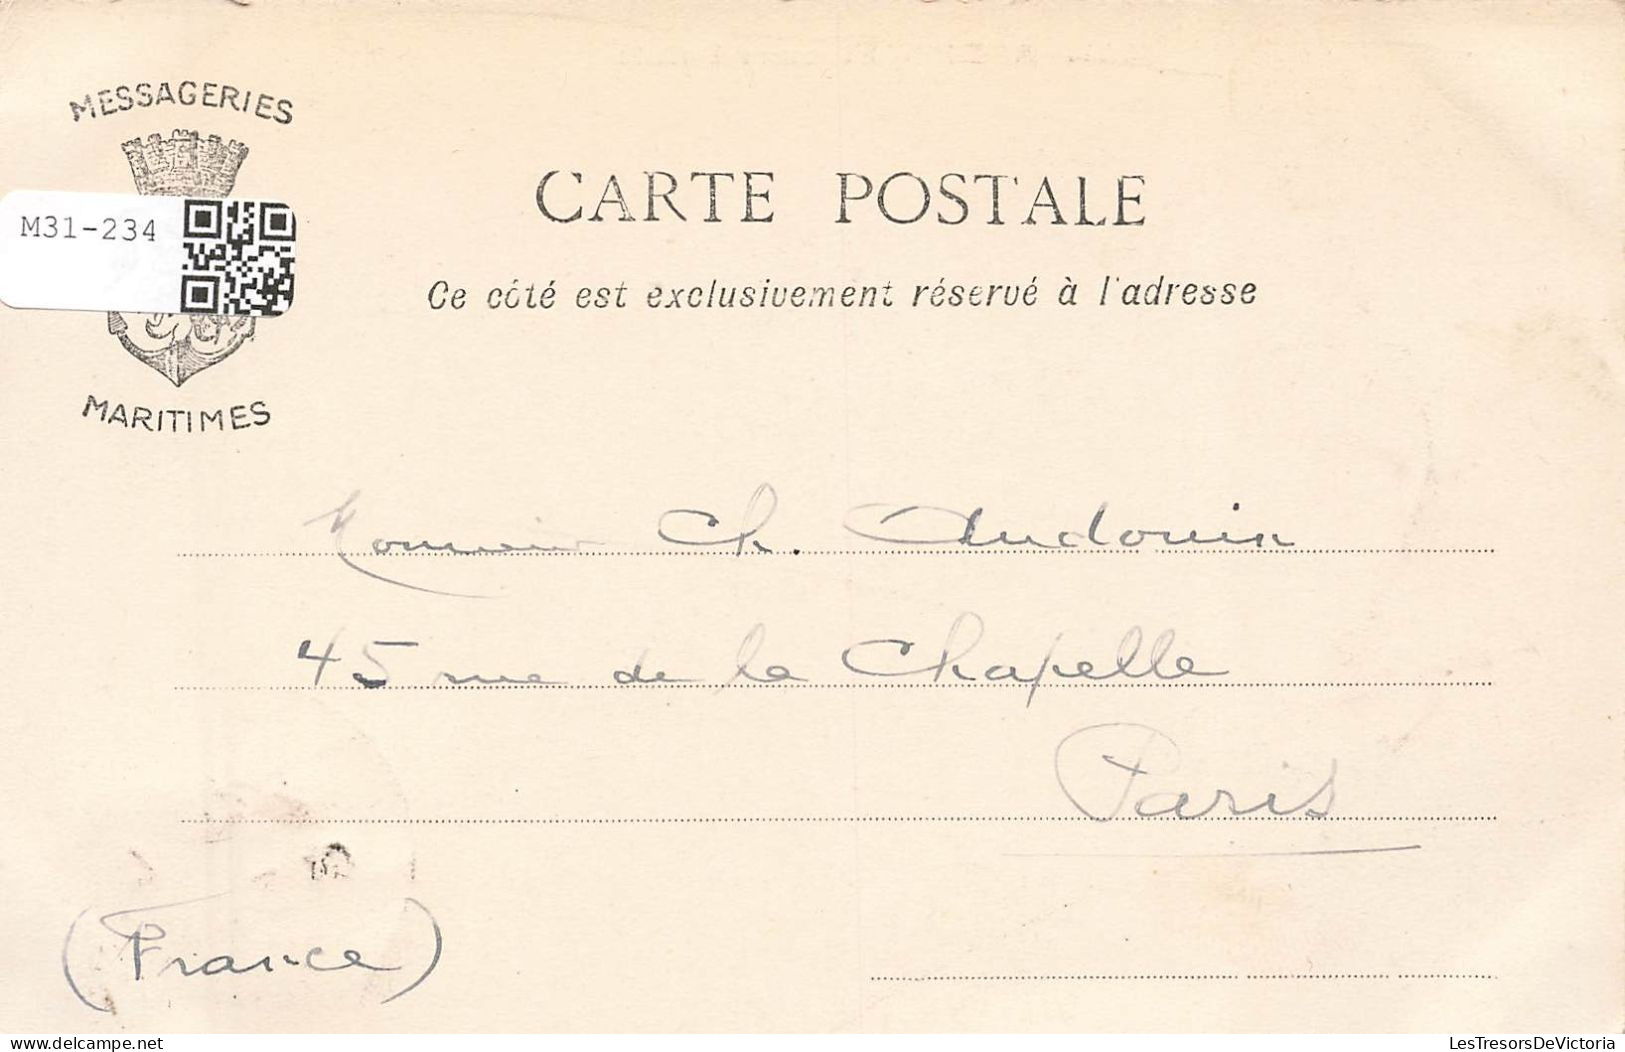 MESSAGERIES
MARITIMES
M31-234
CARTE POSTALE
Ce côté est exclusivement réservé à l'adresse
Monsieur Ch. Audouin
45 rue de la Chapelle
Paris
(France)
LesTresorsDeVictoria
delcampe.net